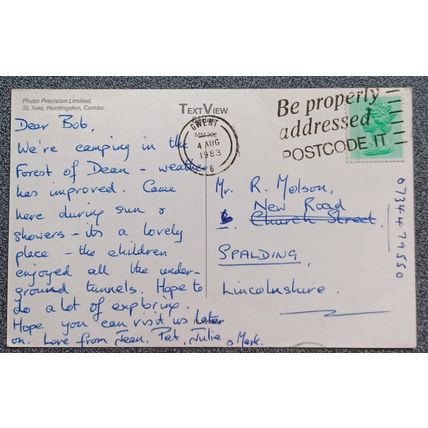 Photo Precision Limited,
St. Ives, Huntingdon, Cambs.
TEXTVIEW
Dear Bob,
We're camping in the
Forest of Dean - weather
has improved. Came
here during sun &
showers - its a lovely
place - the children
enjoyed all the under-
ground tunnels. Hope to
do a lot of exploring.
Hope you can visit us later
on. Love from Jean, Pat, Julie & Mark.
GWENT
4 AUG
1983
Be properly
addressed
POSTCODE IT
Mr. R. Molson,
New Road
Church Street,
SPALDING,
Lincolnshire.